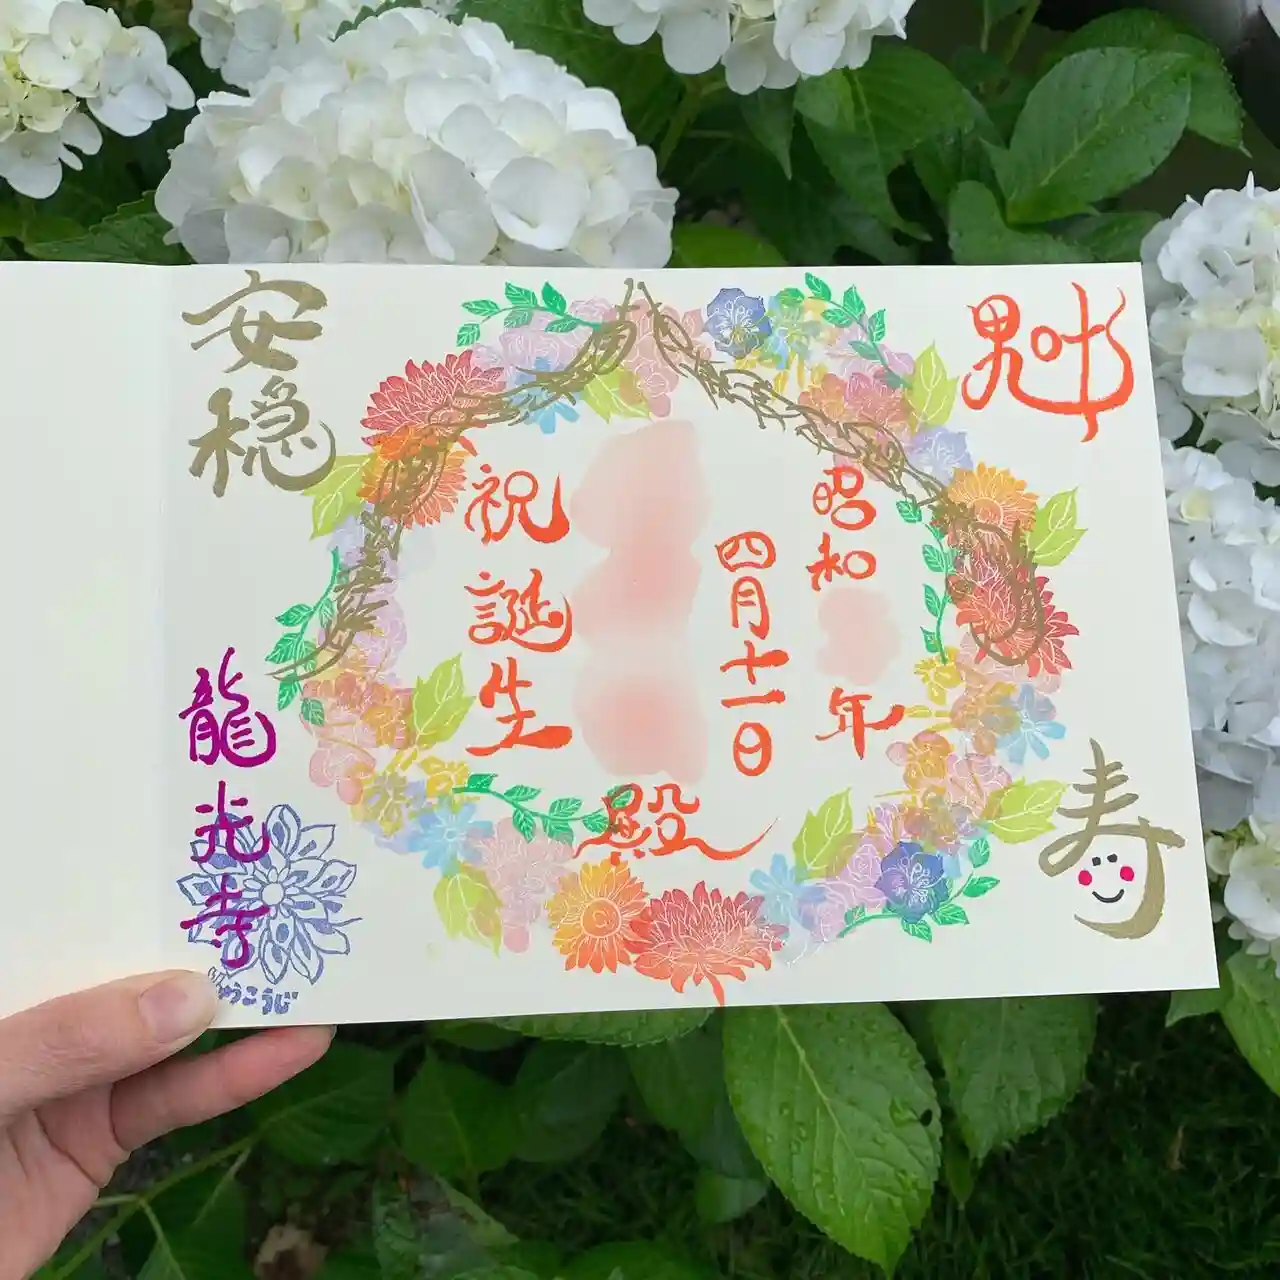 寿
昭和 年
四月十一日
殿
祝誕生
安穏
龍光寺
りゅうこうじ